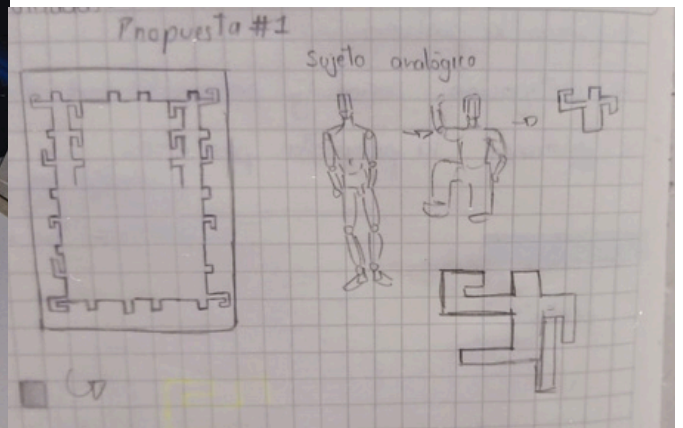 Propuesta #1
Sujeto analógico